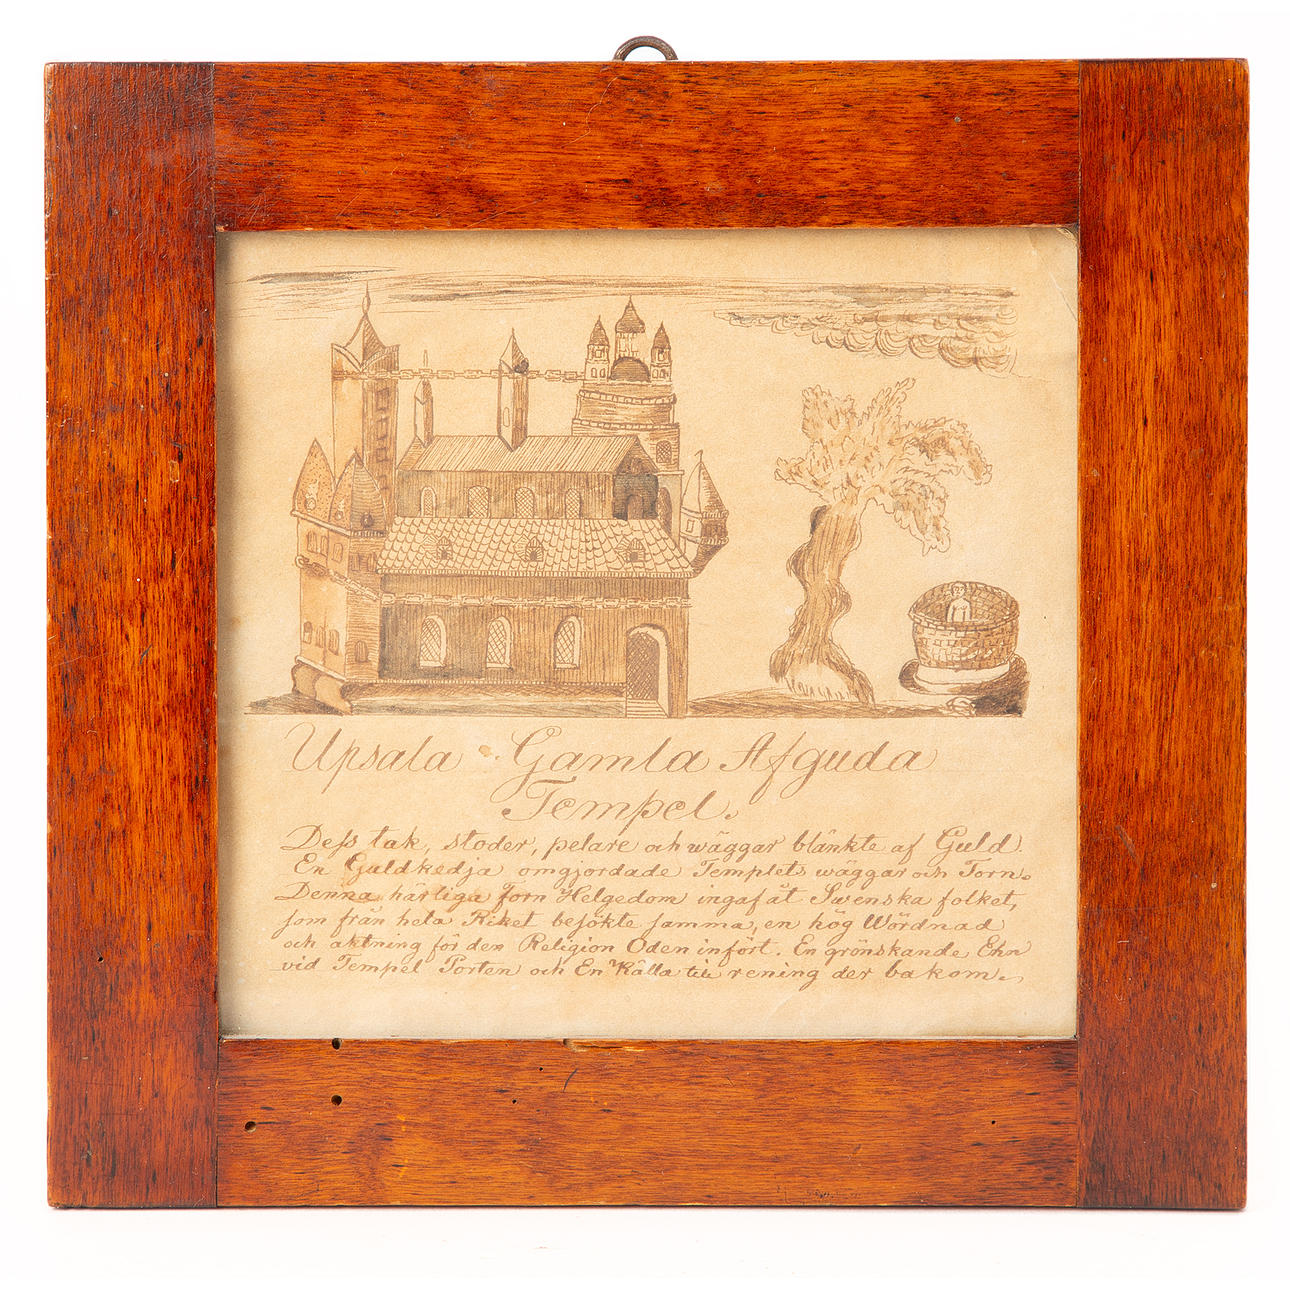 Upsala Gamla Afguda
Tempel.
Dess tak, stoder, pelare och wäggar blänkte af Guld.
En Guldkedja omgjordade Templets wäggar och Torn.
Denna härliga forn Helgedom ingaf åt Swenska folket,
som från hela Riket besökte samma, en hög Wördnad
och aktning för den Religion Oden infört. En grönskande Ehn
vid Tempel Porten och En Källa till rening der bakom.